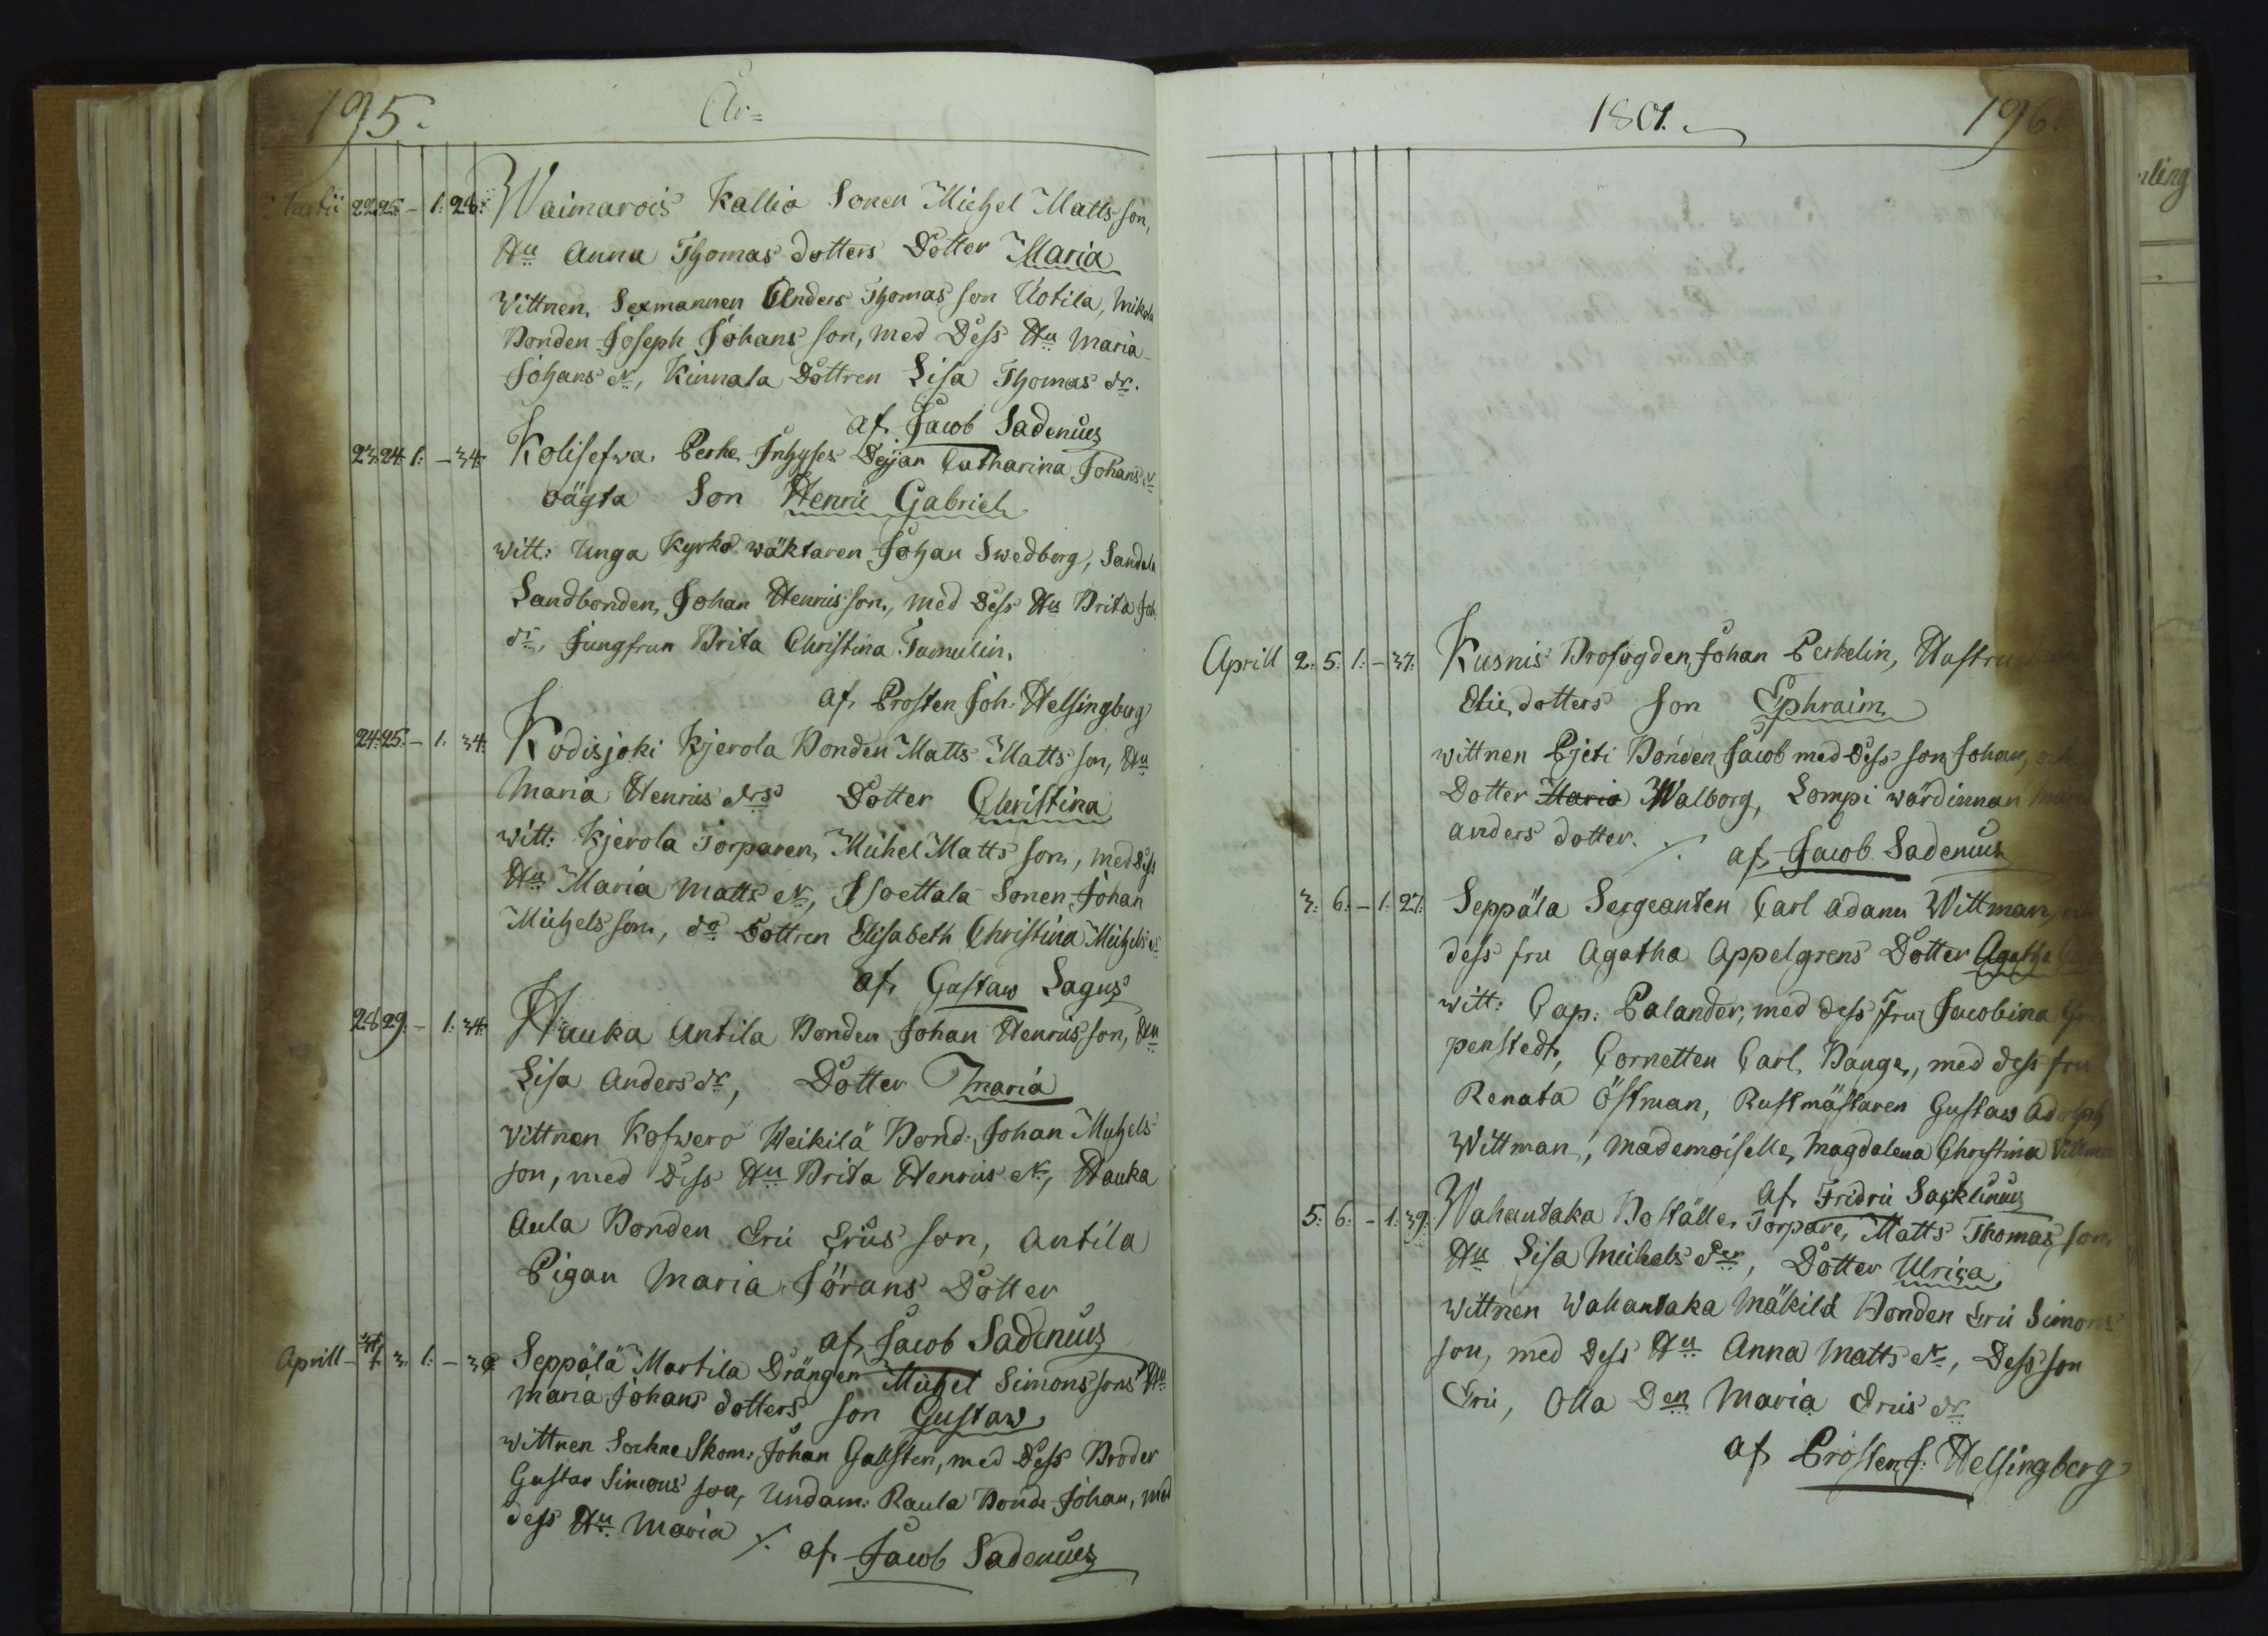 195.
År=
22. 25. - 1: 28: Waimarois Kallio Sonen Michel Matts son,
Hu Anna Thomas dotters Dotter Maria
Vittnen, Sexmannen Anders Thomas son Uotila, Mikola
Bonden Joseph Johans son, med Dess Hu Maria
Johans dr, Kinnala Dottren Lisa Thomas dr.
af Jacob Sadenius
23. 24. 1: - 34. Kolisefwa Perhe Inhyses Pejan Catharina Johans dr
oägta Son Henric Gabriel
witt: Unga Kyrko wäktaren Johan Swedberg, Sandela
Landbonden, Johan Henrics son, med Dess Hu Brita Joh.
dr, Jungfrun Brita Christina Tamulin.
af Prosten Joh: Helsingberg
24. 25. - 1. 34. Kodisjoki Kjerola Bonden Matts Matts son, Hu
Maria Henrics drs Dotter Christina
witt: Kjerola Torparen, Michel Matts son, med Dess
Hu Maria Matts dr, Isoettala Sonen Johan
Michels son, do Dottren Elisabeth Christina Michels dr
af Gustaw Lagus
28. 29. - 1: 34. Hauka Antila Bonden Johan Henrics son, Hu
Lisa Anders dr, Dotter Maria
Vittnen Kofwero Heikilä Bond: Johan Michels
son, med Dess Hu Brita Henrics dr, Hauka
Aula Bonden Eric Erics son, Antila
Pigan Maria Jörans Dotter
af Jacob Sadenius
Aprill 31/1. 3. 1: - 30 Seppälä Martila Drängen Michel Simons sons Hu
Maria Johans dotters son Gustaw
wittnen Sockne Skom: Johan Gallsten, med Dess Broder
Gustav Simons son, Undam: Raula Bonde Johan, med
dess Hu Maria ./. af Jacob Sadenius
1801.
196.
Aprill 2. 5. 1: - 37. Kusnis Profogden, Johan Perkelin, Hustru
Elie dotters son Ephraim
wittnen Pjeti Bonden Jacob med Dess son Johan, och
Dotter Maria Walborg, Lompi wärdinnan Maria
anders dotter. ./. af Jacob Sadenius
3. 6. - 1: 27. Seppäla Sergeanten Carl adam Wittman,
dess fru Agatha Appelgrens Dotter Agatha
witt: Cap: Palander, med dess Fru Jacobina Gr
penstedt, Cornetten Carl Bange, med dess fru
Renata Östman, Rustmästaren Gustaw Adolph
Wittman, mademoiselle, Magdalena Christina Vittman
af Fridric Sacklinius
5. 6. - 1. 39. Wahantaka Boställe, Torpare, Matts Thomas son,
Hu Lisa Michels Dr, Dotter Ulrica,
Wittnen Wahantaka Mäkilä Bonden Eric Simons
son, med Dess Hu Anna Matts dr, Dess son
Eric, Olla Den Maria Erics dr
af Prosten J. Helsingberg
rling